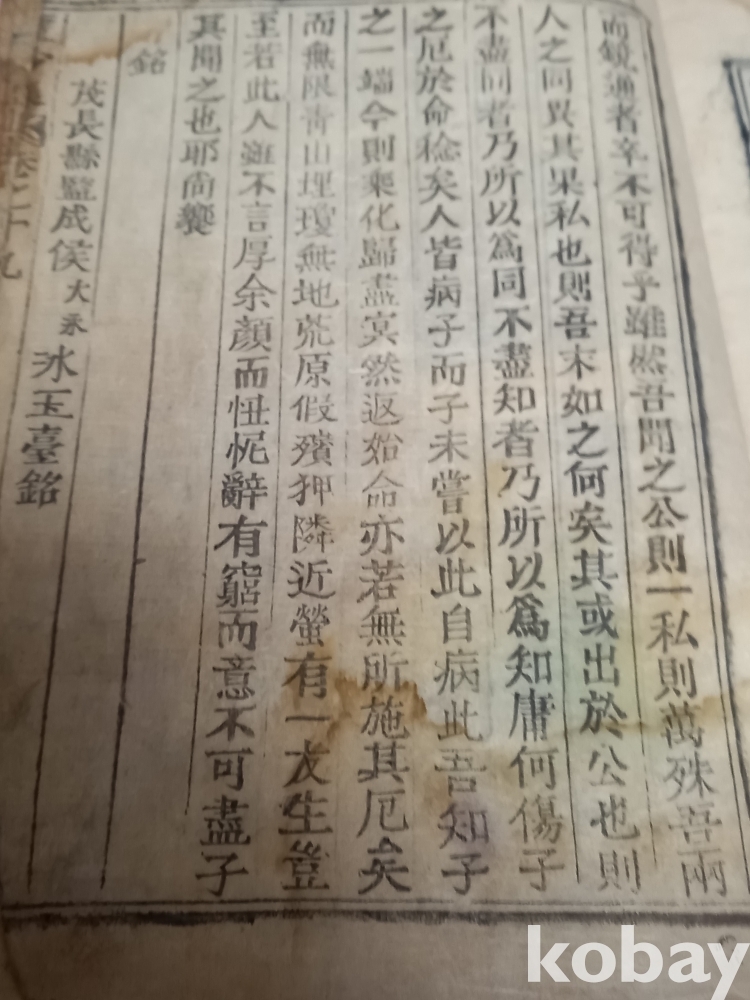 而鏡通者卒不可得乎雖然吾聞之公則一私則萬殊吾兩
人之同異其果私也則吾末如之何矣其或出於公也則
不盡同者乃所以爲同不盡知者乃所以爲知庸何傷子
之厄於命稔矣人皆病子而子未嘗以此自病此吾知子
之一端今則乘化歸盡冥然返始命亦若無所施其厄矣
而無限靑山埋瓊無地荒原假殯狎隣近螢有一友生豈
至若此人雖不言厚余顔而忸怩辭有窮而意不可盡子
其聞之也耶尙饗
銘
茂長縣監成侯大永氷玉臺銘
卷之十九
kobay